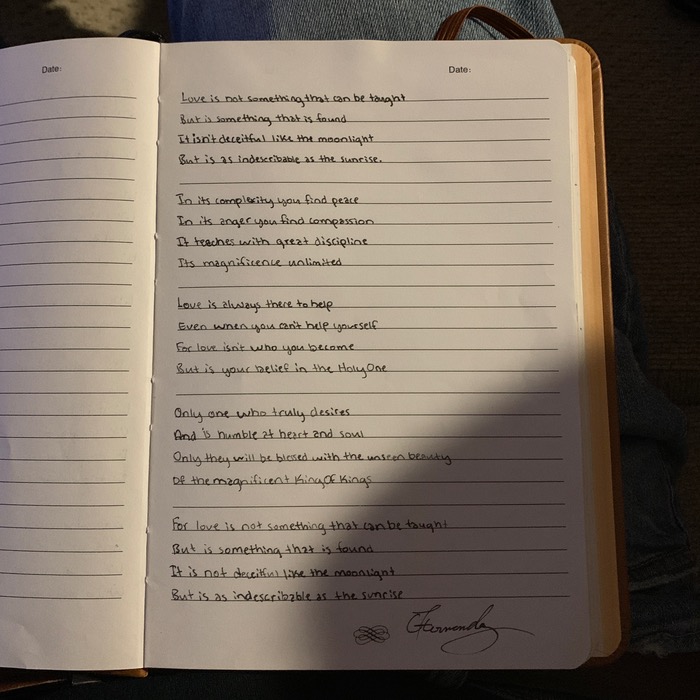 Date:
Date:
Love is not something that can be taught
But is something that is found
It isn't deceitful like the moonlight
But is as indescribable as the sunrise.
In its complexity you find peace
In its anger you find compassion
It teaches with great discipline
Its magnificence unlimited
Love is always there to help
Even when you can't help yourself
For love isn't who you become
But is your belief in the Holy One
Only one who truly desires
And is humble at heart and soul
Only they will be blessed with the unseen beauty
Of the magnificent King Of Kings
For love is not something that can be taught
But is something that is found
It is not deceitful like the moonlight
But is as indescribable as the sunrise